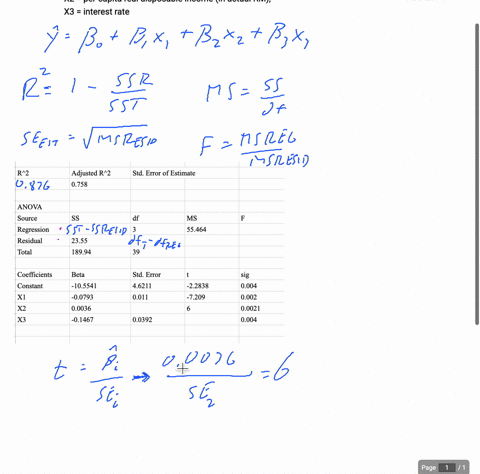 X3 = interest rate
ŷ = β₀ + β₁x₁ + β₂x₂ + β₃x₃
R² = 1 - SSR/SST
MS = SS/df
SE EST = √MSRESID
F = MSREG/MSRESID
R^2 Adjusted R^2 Std. Error of Estimate
0.876 0.758
ANOVA
Source SS df MS F
Regression SST - SSRESID 3 55.464
Residual 23.55 df_T - df_REG
Total 189.94 39
Coefficients Beta Std. Error t sig
Constant -10.5541 4.6211 -2.2838 0.004
X1 -0.0793 0.011 -7.209 0.002
X2 0.0036 6 0.0021
X3 -0.1467 0.0392 0.004
t = β̂ᵢ/SEᵢ → 0.0036/SE₂ = 6
Page 1 / 1